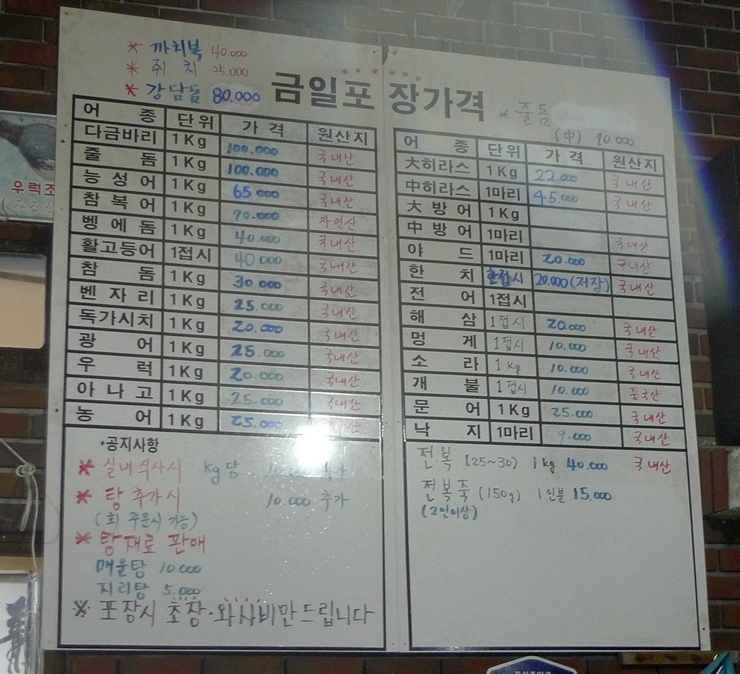 * 까치복 40.000
* 쥐치 25.000
* 강담돔 80.000
금일포장가격
* 줄돔
(中) 90.000
어종 단위 가격 원산지
다금바리 1Kg 100.000 국내산
줄돔 1Kg 100.000 국내산
능성어 1Kg 65.000 국내산
참복어 1Kg 70.000 자연산
벵에돔 1Kg 40.000 국내산
활고등어 1접시 40.000 국내산
참돔 1Kg 30.000 국내산
벤자리 1Kg 25.000 국내산
독가시치 1Kg 20.000 국내산
광어 1Kg 25.000 국내산
우럭 1Kg 20.000 국내산
아나고 1Kg 25.000 국내산
농어 1Kg 25.000 국내산
*공지사항
* 실내 식사시 kg당
* 탕 추가시 10.000 추가
(회 주문시 가능)
* 탕재료 판매
매운탕 10.000
지리탕 5.000
※ 포장시 초장·와사비만드립니다
어종 단위 가격 원산지
大히라스 1Kg 22.000 국내산
中히라스 1마리 45.000 국내산
大방어 1Kg
中방어 1마리 국내산
야드 1마리 20.000 국내산
한치 한접시 20.000 (저장) 국내산
전어 1접시
해삼 1접시 20.000 국내산
멍게 1접시 10.000 국내산
소라 1kg 10.000 국내산
개불 1접시 10.000 중국산
문어 1Kg 25.000 국내산
낙지 1마리 9.000 국내산
전복 (25~30) 1kg 40.000 국내산
전복죽 (150g) 1인분 15.000
(2인이상)
우럭조